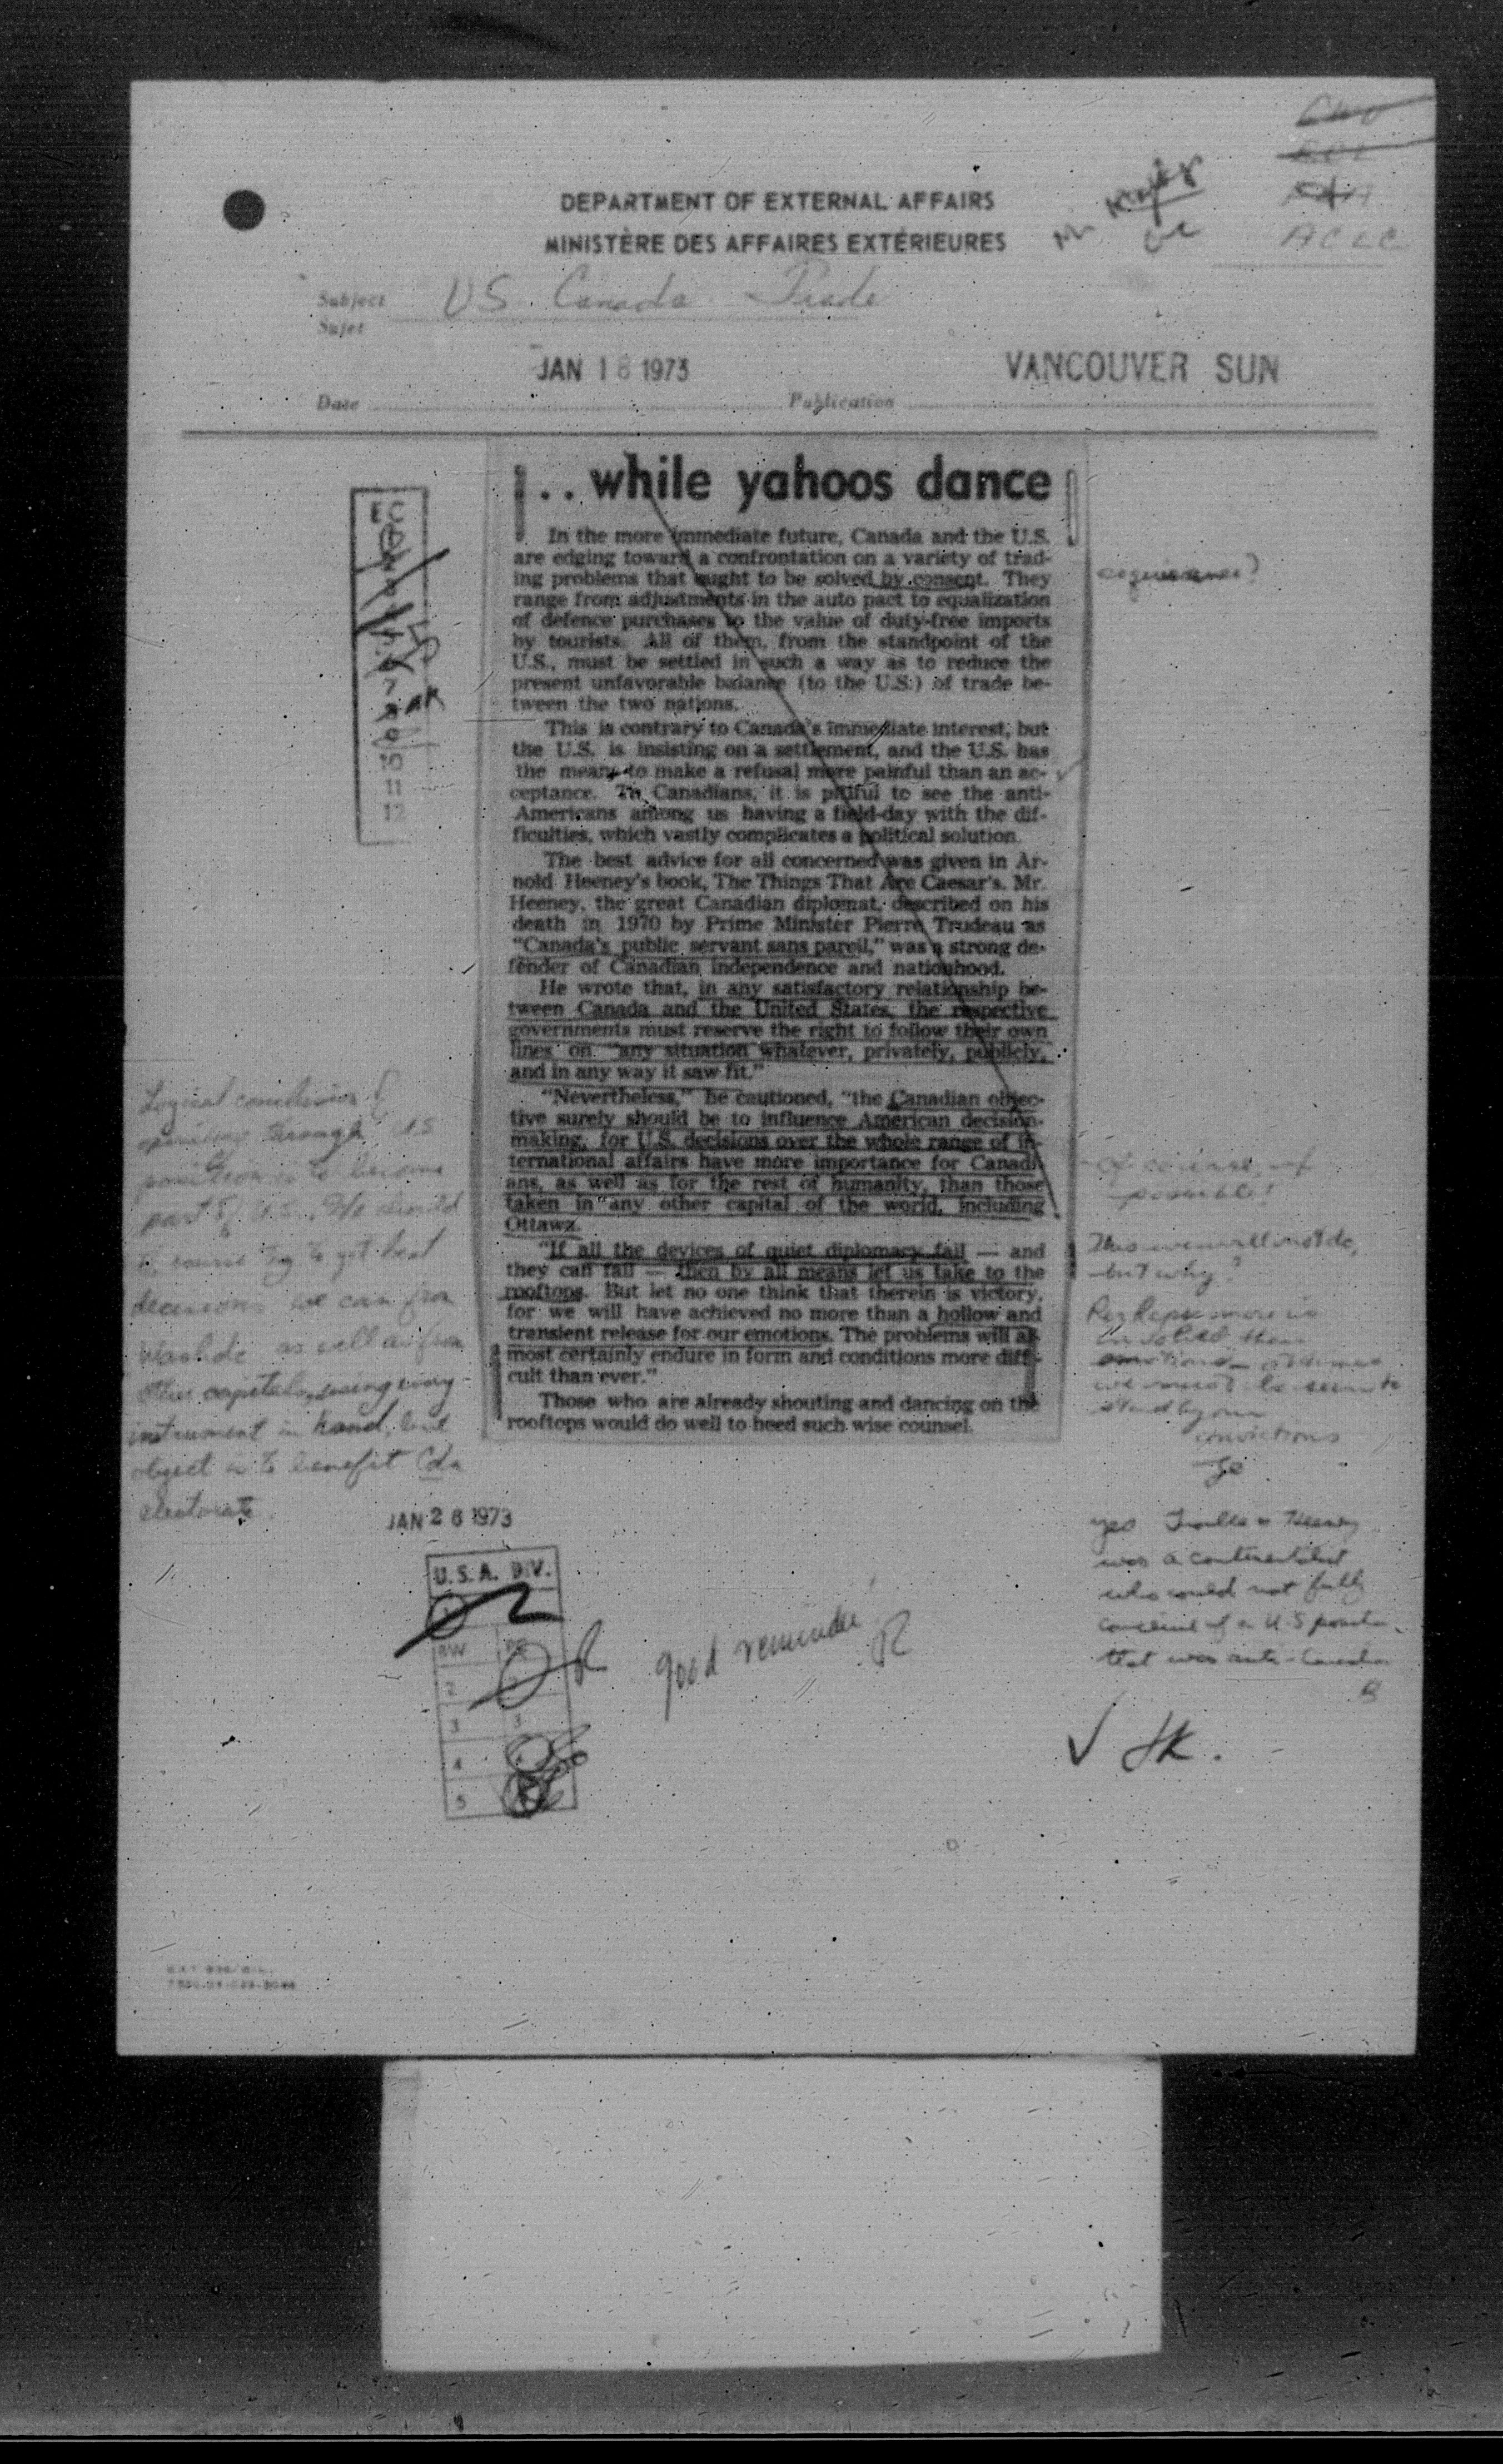 DEPARTMENT OF EXTERNAL AFFAIRS
MINISTÈRE DES AFFAIRES EXTÉRIEURES
ACLC
Subject US Canada Trade
Sujet
JAN 18 1973
VANCOUVER SUN
Date
Publication
. . while yahoos dance
In the more immediate future, Canada and the U.S.
are edging toward a confrontation on a variety of trad-
ing problems that ought to be solved by consent. They
range from adjustments in the auto pact to equalization
of defence purchases to the value of duty-free imports
by tourists. All of them, from the standpoint of the
U.S., must be settled in such a way as to reduce the
present unfavorable balance (to the U.S.) of trade be-
tween the two nations.
This is contrary to Canada's immediate interest, but
the U.S. is insisting on a settlement, and the U.S. has
the means to make a refusal more painful than an ac-
ceptance. To Canadians, it is pitiful to see the anti-
Americans among us having a field-day with the dif-
ficulties, which vastly complicates a political solution.
The best advice for all concerned was given in Ar-
nold Heeney's book, The Things That Are Caesar's. Mr.
Heeney, the great Canadian diplomat, described on his
death in 1970 by Prime Minister Pierre Trudeau as
"Canada's public servant sans pareil," was a strong de-
fender of Canadian independence and nationhood.
He wrote that, in any satisfactory relationship be-
tween Canada and the United States, the respective
governments must reserve the right to follow their own
lines on "any situation whatever, privately, publicly,
and in any way it saw fit."
"Nevertheless," he cautioned, "the Canadian objec-
tive surely should be to influence American decision-
making, for U.S. decisions over the whole range of in-
ternational affairs have more importance for Canadi-
ans, as well as for the rest of humanity, than those
taken in any other capital of the world, including
Ottawa.
"If all the devices of quiet diplomacy fail — and
they can fail — then by all means let us take to the
rooftops. But let no one think that therein is victory,
for we will have achieved no more than a hollow and
transient release for our emotions. The problems will al-
most certainly endure in form and conditions more diffi-
cult than ever."
Those who are already shouting and dancing on the
rooftops would do well to heed such wise counsel.
EC
7
10
11
12
Logical conclusion of
through US
position is to become
part of U.S. We should
of course try to get best
decisions we can from
as well as from
other capitals, using every
instrument in hand, but
object is to benefit Cda
electorate.
Of course, if
possible!
This we will not do,
but why?
Perhaps more is
involved than
emotions – at times
we must be seen to
stand by our
convictions
yes Trouble is Heeney
was a continentalist
who could not fully
conceive of a U.S position
that was anti-Canadian
JAN 26 1973
U.S.A. DIV.
2
BW
2
3 3
4
5
good reminder
JK.